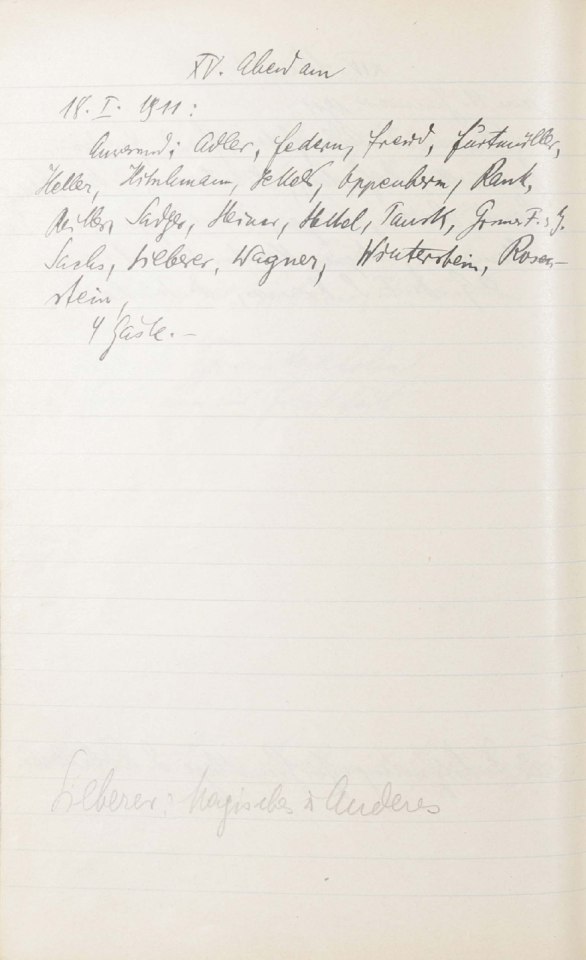 XV. Abend am
18. I. 1911:
Anwesend: Adler, Federn, Freud, Furtmüller,
Heller, Hitschmann, Jekels, Oppenheim, Rank,
Reitler, Sadger, Steiner, Stekel, Tausk, Grüner F. & G.
Sachs, Silberer, Wagner, Winterstein, Rosen-
stein,
4 Gäste. –
Silberer: Magisches & Anderes